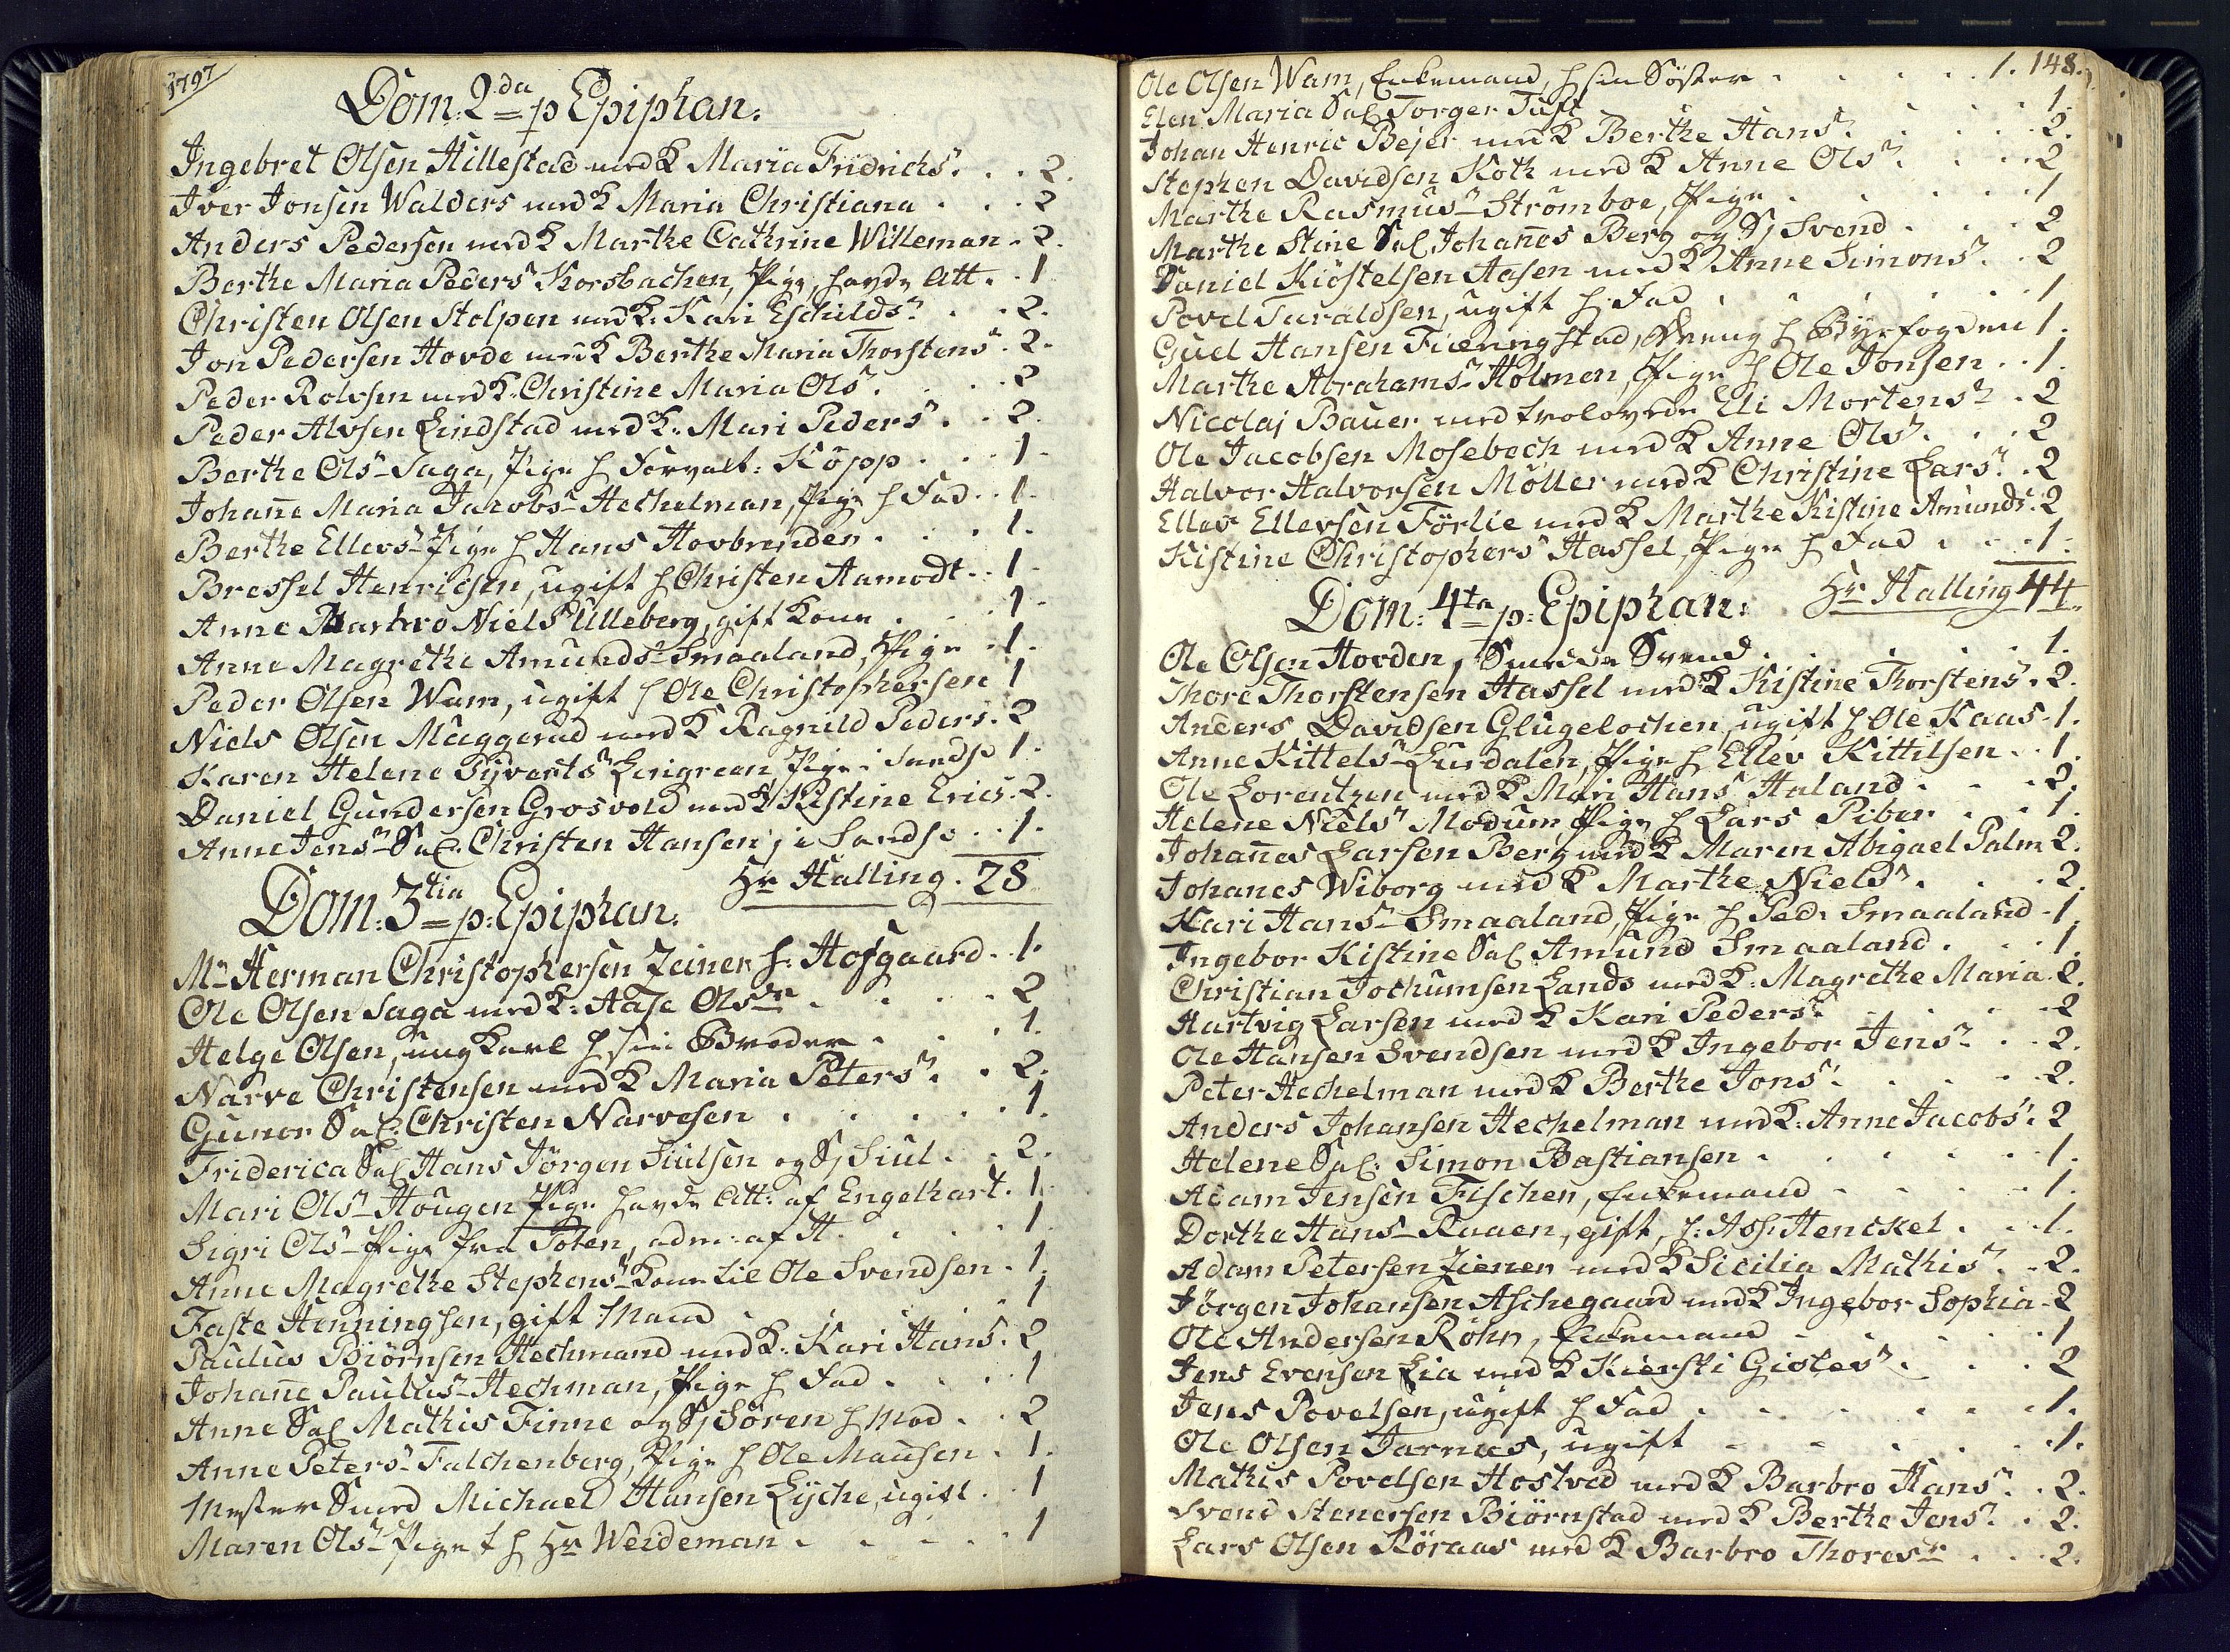 1797
Dom: 2da p Epiphan:
Ingebret Olsen Hillestad med K Maria Fridrichs . . . 2.
Iver Jonsen Walders med K Maria Christiana . . . 2
Anders Pedersen med K Marthe Cathrine Willeman . 2.
Berthe Maria Peders Korsbachen, Pige, havde Att. . 1
Christen Olsen Stolpen med K. Kari Eschilds . . 2.
Jon Pedersen Hovde med K Berthe Maria Thorstens . 2.
Peder Rolvsen med K. Christine Maria Ols . . . 2
Peder Alvsen Lindstad med K. Mari Peders . . 2.
Berthe Ols Saga, Pige h Forvalt: Köpp . . . 1.
Johane Maria Jacobs Hechelman, Pige h Fad . . 1.
Berthe Ellevs Pige h Hans Hovbrenden . . . 1.
Bressel Henrichsen, ugift h Christen Aamodt . . 1.
Anne Barbro Niels Ulleberg, gift Kone . . . 1.
Anne Magrethe Amunds Smaaland, Pige . 1.
Peder Olsen Wam, ugift h Ole Christophersen 1
Niels Olsen Muggerud med K Ragnild Peders . 2
Karen Helene Syverts Lerigreen, Pige i Sands 1.
Daniel Gundersen Grosvold med K Kistine Erics . 2.
Anne Jens Sal. Christen Hansen, i Sands . . 1.
Hr Halling . 28
Dom: 3tia p. Epiphan.
Mr Herman Christophersen Zeiner h. Hofgaard . . 1.
Ole Olsen Saga med K. Aase Olsdr . . . 2
Helge Olsen, ung Karl h sin Broder . . . 1.
Narve Christensen med K Maria Peters . . 2.
Guner Sal. Christen Narvesen . . . . 1.
Friderica Sal Hans Jörgen Siulsen og S Siul . . 2.
Mari Ols Hougen Pige havde Att: af Engelhart . 1.
Sigri Ols Pige fra Toten, adm: af H . . . 1
Anne Magrethe Stephens Kone til Ole Svendsen . 1.
Faste Henningsen, gift Mand . . . 1
Paulus Biörnsen Hechmand med K. Kari Hans . 2
Johane Paulus Hechman, Pige h Fad . . . 1
Anne Sal Mathis Finne og S Sören h Mod . . 2
Anne Peters Falchenberg, Pige h Ole Mausen . 1.
Mester Smed Michael Hansen Lyche, ugift . . 1
Maren Ols Pige h Hr Weideman . . . . 1
148.
Ole Olsen Wam, Enkemand, h sin Söster . . . . 1.
Elen Maria Sal Torger Tuft . . . . 1.
Johan Henric Bejer med K Berthe Hans . . . . 2.
Stephen Davidsen Koth med K Anne Ols . . . . 2
Marthe Rasmus Strömboe, Pige . . . . 1
Marthe Stine Sal Johanes Berg og S Svend . . . 2
Daniel Kiöstelsen Aasen med K Anne Simons . . 2
Povel Taraldsen, ugift h Fad . . . . 1
Guel Hansen Fieeringstad, Dreng h Byefogden 1.
Marthe Abrahams Holmen, Pige h Ole Jonsen . . 1.
Nicolaj Bauer med trolovede Eli Mortens . 2
Ole Jacobsen Mosebech med K Anne Ols . . . 2
Halvor Halvorsen Möller med K Christine Lars . 2
Ellev Ellevsen Förlie med K Marthe Kistine Amunds . 2
Kistine Christophers Hassel, Pige h Fad . . . 1.
Hr Halling 44
Dom: 4ta p: Epiphan:
Ole Olsen Hovden, Smede Svend . . . . 1.
Thore Thorstensen Hassel med K Kistine Thorstens . 2.
Anders Davidsen Glugelochen, ugift h Ole Kaas . 1.
Anne Kittels Lurdalen, Pige h Ellev Kittilsen . . 1.
Ole Lorentzen med K Mari Hans Haland . . . 2.
Helene Niels Modum, Pige h Lars Piber . . . 1.
Johanes Larsen Berg med K Maren Abigael Palm 2.
Johanes Wiborg med K Marthe Niels . . . 2.
Kari Hans Smaaland, Pige h Ped. Smaaland . 1
Ingebor Kistine Sal Amund Smaaland . . . 1.
Christian Jochumsen Lands med K. Magrethe Maria . 2.
Hartvig Larsen med K Kari Peders . . . . 2
Ole Hansen Svendsen med K Ingebor Jens . . 2.
Peter Hechelman med K Berthe Jons . . . 2.
Anders Johansen Hechelman med K. Anne Jacobs . 2
Helene Sal. Simon Bastiansen . . . . 1.
Adam Jensen Fischer, Enkemand . . . . 1.
Dorthe Hans Ruuen, gift, h: Ass: Henckel . . 1.
Adam Petersen Zienen med K Sicilia Mathis . . 2.
Jörgen Johansen Aschegaard med K Ingebor Sophia . 2
Ole Andersen Röhn, Enkemand . . . . 1
Jens Evensen Lia med K Kiersti Giolevs . . . 2
Jens Povelsen, ugift h Fad . . . . 1.
Ole Olsen Tarnæs, ugift . . . . 1.
Mathis Povelsen Hostved med K Barbro Hans . . 2.
Svend Stenersen Biörnstad med K Berthe Jens . . 2.
Lars Olsen Röraas med K Barbro Thores . . . 2.